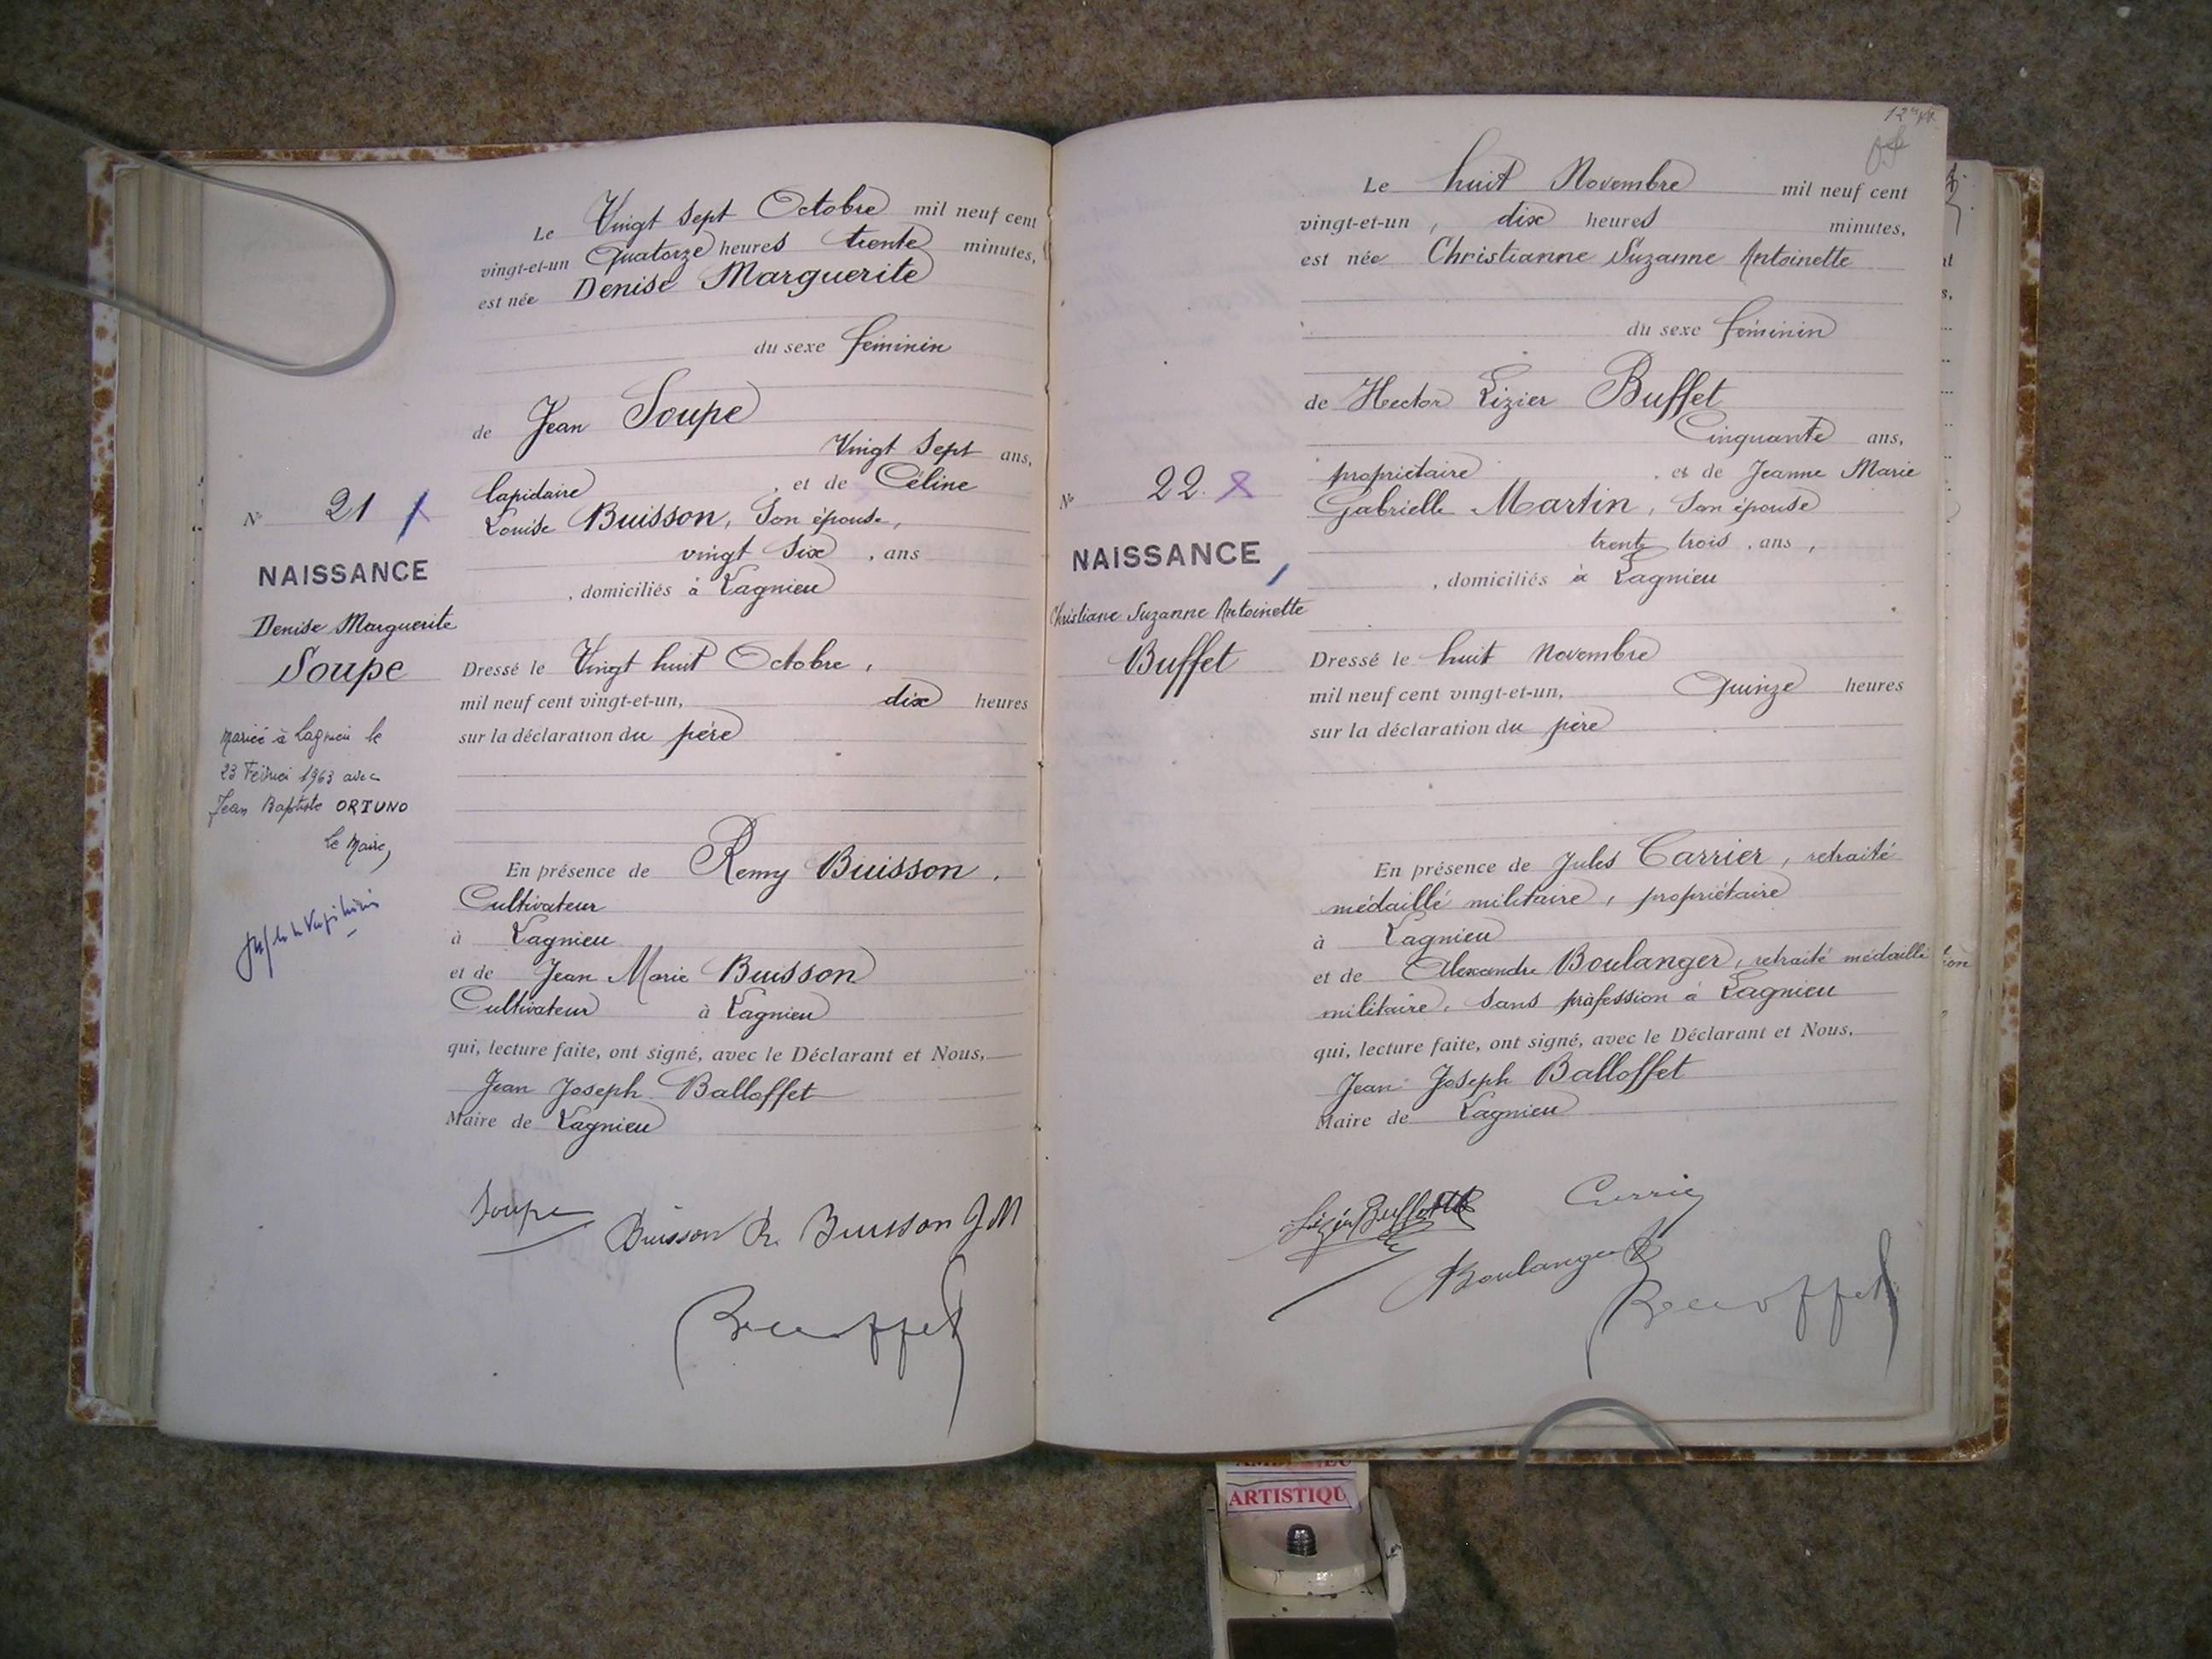 Le Vingt Sept Octobre mil neuf cent
vingt-et-un Quatorze heures trente minutes,
est née Denise Marguerite
du sexe féminin
de Jean Soupe
Vingt Sept ans,
lapidaire, et de Céline
Louise Buisson, Son épouse,
vingt Six, ans
, domiciliés à Lagnieu
N° 21
NAISSANCE
Denise Marguerite
Soupe
Mariée à Lagnieu le
23 Février 1963 avec
Jean Baptiste ORTUNO
Le Maire,
Dressé le Vingt huit Octobre,
mil neuf cent vingt-et-un, dix heures
sur la déclaration du père
En présence de Remy Buisson,
Cultivateur
à Lagnieu
et de Jean Marie Buisson
Cultivateur à Lagnieu
qui, lecture faite, ont signé, avec le Déclarant et Nous,
Jean Joseph Balloffet
Maire de Lagnieu
Soupe Buisson R. Buisson J M
Balloffet
Le huit Novembre mil neuf cent
vingt-et-un, dix heures minutes,
est née Christianne Suzanne Antoinette
du sexe féminin
de Hector Lizier Buffet
Cinquante ans,
propriétaire, et de Jeanne Marie
Gabrielle Martin, Son épouse
trente trois, ans,
, domiciliés à Lagnieu
N° 22
NAISSANCE
Christiane Suzanne Antoinette
Buffet
Dressé le huit Novembre
mil neuf cent vingt-et-un, Quinze heures
sur la déclaration du père
En présence de Jules Carrier, retraité
médaillé militaire, propriétaire
à Lagnieu
et de Alexandre Boulanger, retraité médaillé
militaire, Sans profession à Lagnieu
qui, lecture faite, ont signé, avec le Déclarant et Nous,
Jean Joseph Balloffet
Maire de Lagnieu
Lizier Buffet Carrier
Boulanger
Balloffet
ARTISTIQU